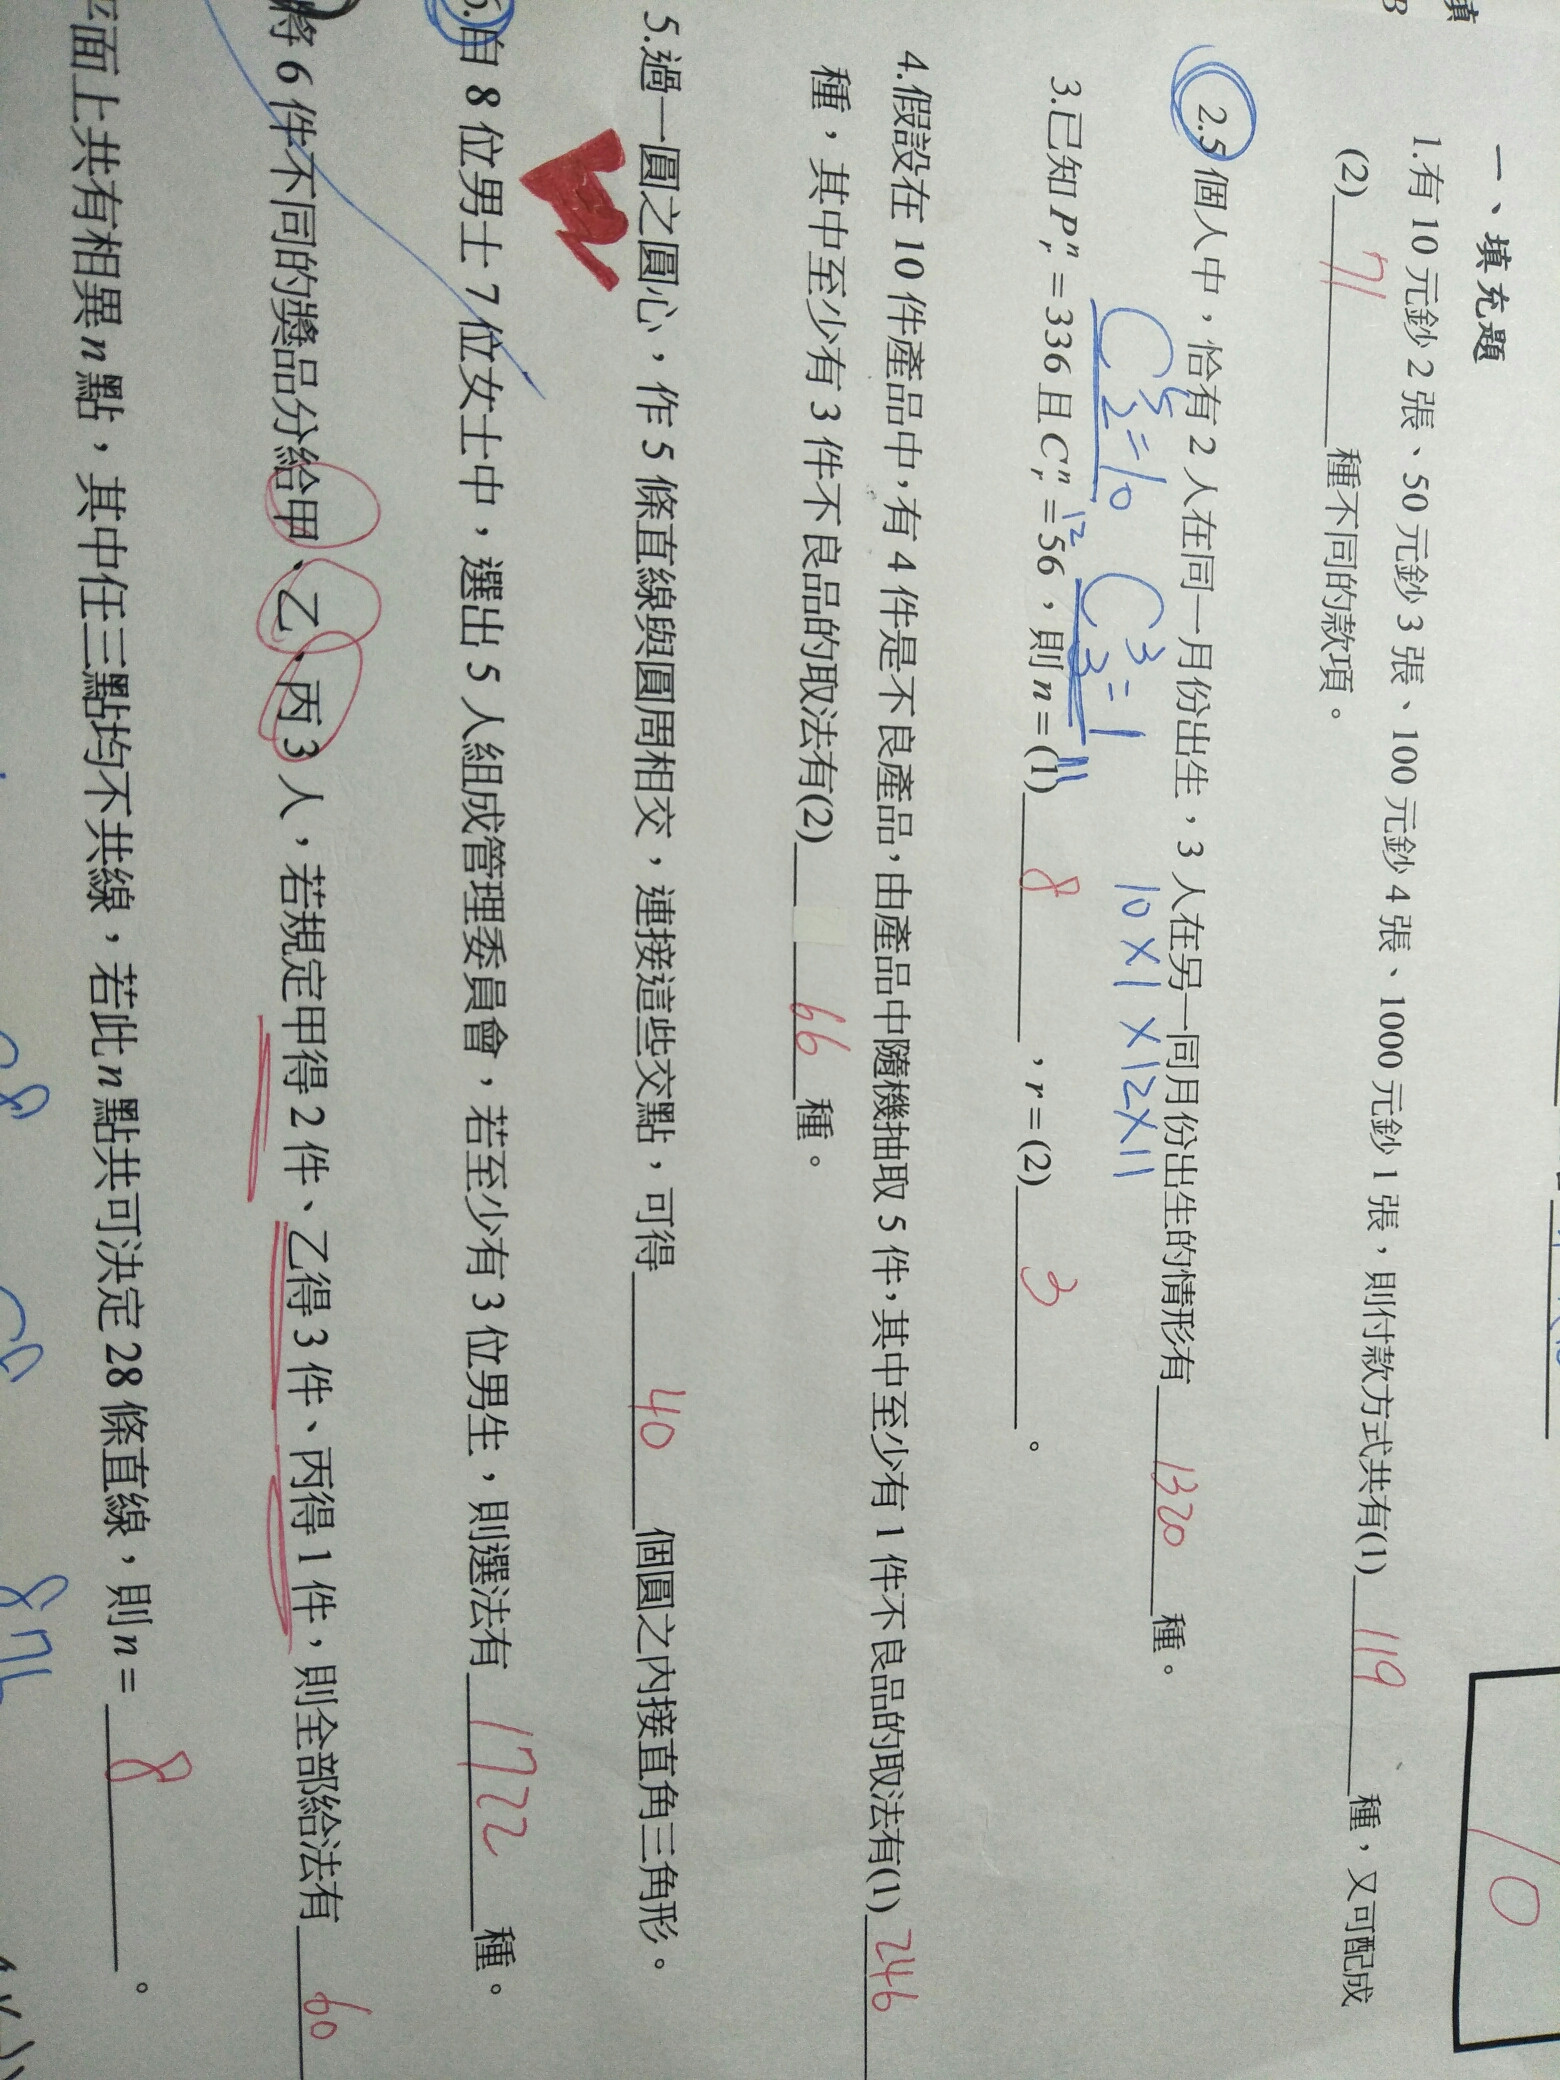 一、填充題
10
1.有 10 元鈔 2 張、50 元鈔 3 張、100 元鈔 4 張、1000 元鈔 1 張，則付款方式共有(1) 119 種，又可配成
(2) 71 種不同的款項。
2.5 個人中，恰有 2 人在同一月份出生，3 人在另一同月份出生的情形有 1320 種。
C⁵₂=10 C³₃=1 10×1×12×11
12 11
3.已知 Pⁿᵣ = 336 且 Cⁿᵣ = 56，則 n = (1) 8 ，r = (2) 3 。
4.假設在 10 件產品中，有 4 件是不良產品，由產品中隨機抽取 5 件，其中至少有 1 件不良品的取法有(1) 246
種，其中至少有 3 件不良品的取法有(2) 66 種。
5.過一圓之圓心，作 5 條直線與圓周相交，連接這些交點，可得 40 個圓之內接直角三角形。
6.自 8 位男士 7 位女士中，選出 5 人組成管理委員會，若至少有 3 位男生，則選法有 1722 種。
將 6 件不同的獎品分給甲、乙、丙 3 人，若規定甲得 2 件、乙得 3 件、丙得 1 件，則全部給法有 60
平面上共有相異 n 點，其中任三點均不共線，若此 n 點共可決定 28 條直線，則 n = 8 。